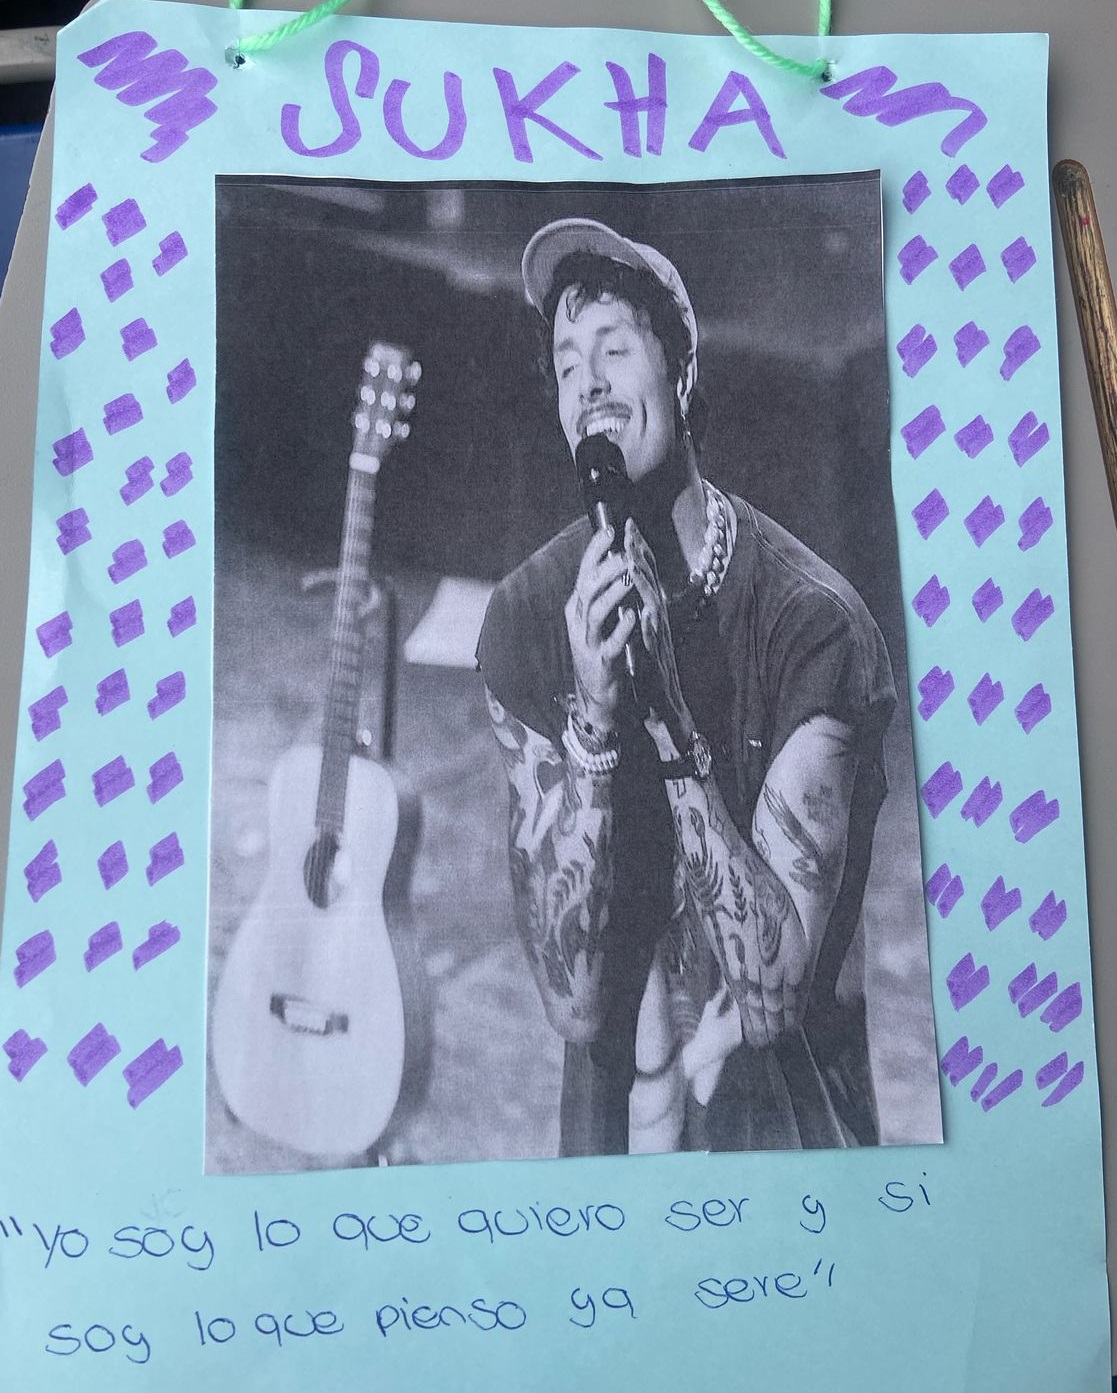 SUKHA
"Yo soy lo que quiero ser y si
soy lo que pienso ya sere"